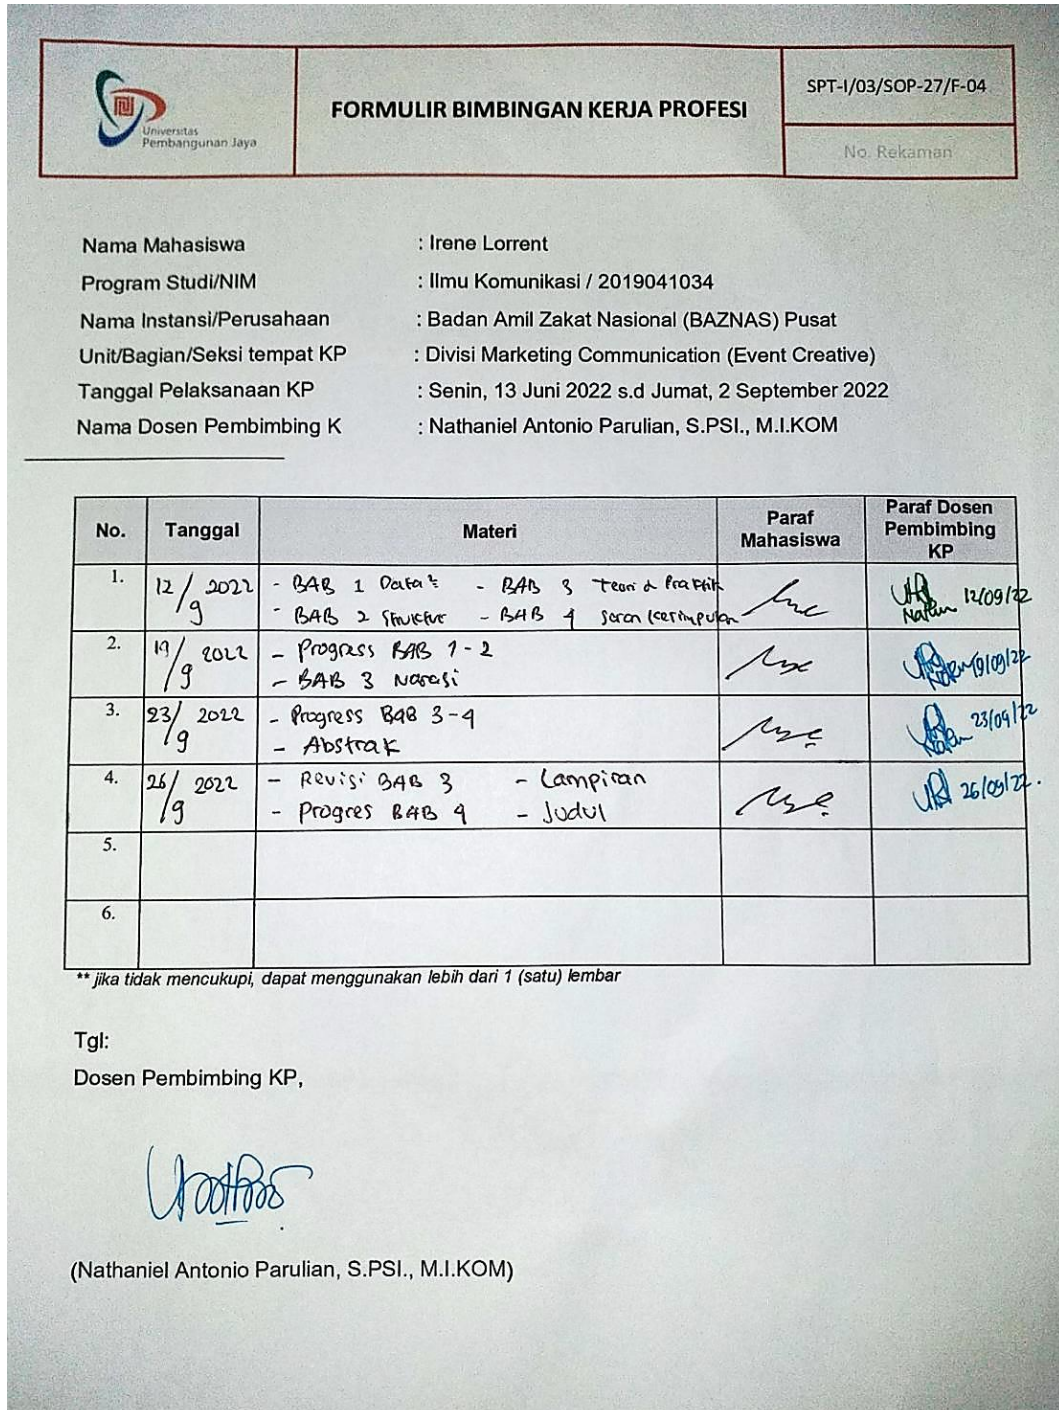 Universitas
Pembangunan Jaya
FORMULIR BIMBINGAN KERJA PROFESI
SPT-I/03/SOP-27/F-04
No. Rekaman
Nama Mahasiswa : Irene Lorrent
Program Studi/NIM : Ilmu Komunikasi / 2019041034
Nama Instansi/Perusahaan : Badan Amil Zakat Nasional (BAZNAS) Pusat
Unit/Bagian/Seksi tempat KP : Divisi Marketing Communication (Event Creative)
Tanggal Pelaksanaan KP : Senin, 13 Juni 2022 s.d Jumat, 2 September 2022
Nama Dosen Pembimbing K : Nathaniel Antonio Parulian, S.PSI., M.I.KOM
No. Tanggal Materi Paraf Mahasiswa Paraf Dosen Pembimbing KP
1. 12/9 2022 - BAB 1 Data² - BAB 3 Teori & Praktik
- BAB 2 Struktur - BAB 4 Saran Kesimpulan 12/09/22
2. 19/9 2022 - Progress BAB 1-2
- BAB 3 Narasi 19/09/22
3. 23/9 2022 - Progress BAB 3-4
- Abstrak 23/09/22
4. 26/9 2022 - Revisi BAB 3 - Lampiran
- Progres BAB 4 - Judul 26/09/22.
5.
6.
** jika tidak mencukupi, dapat menggunakan lebih dari 1 (satu) lembar
Tgl:
Dosen Pembimbing KP,
(Nathaniel Antonio Parulian, S.PSI., M.I.KOM)